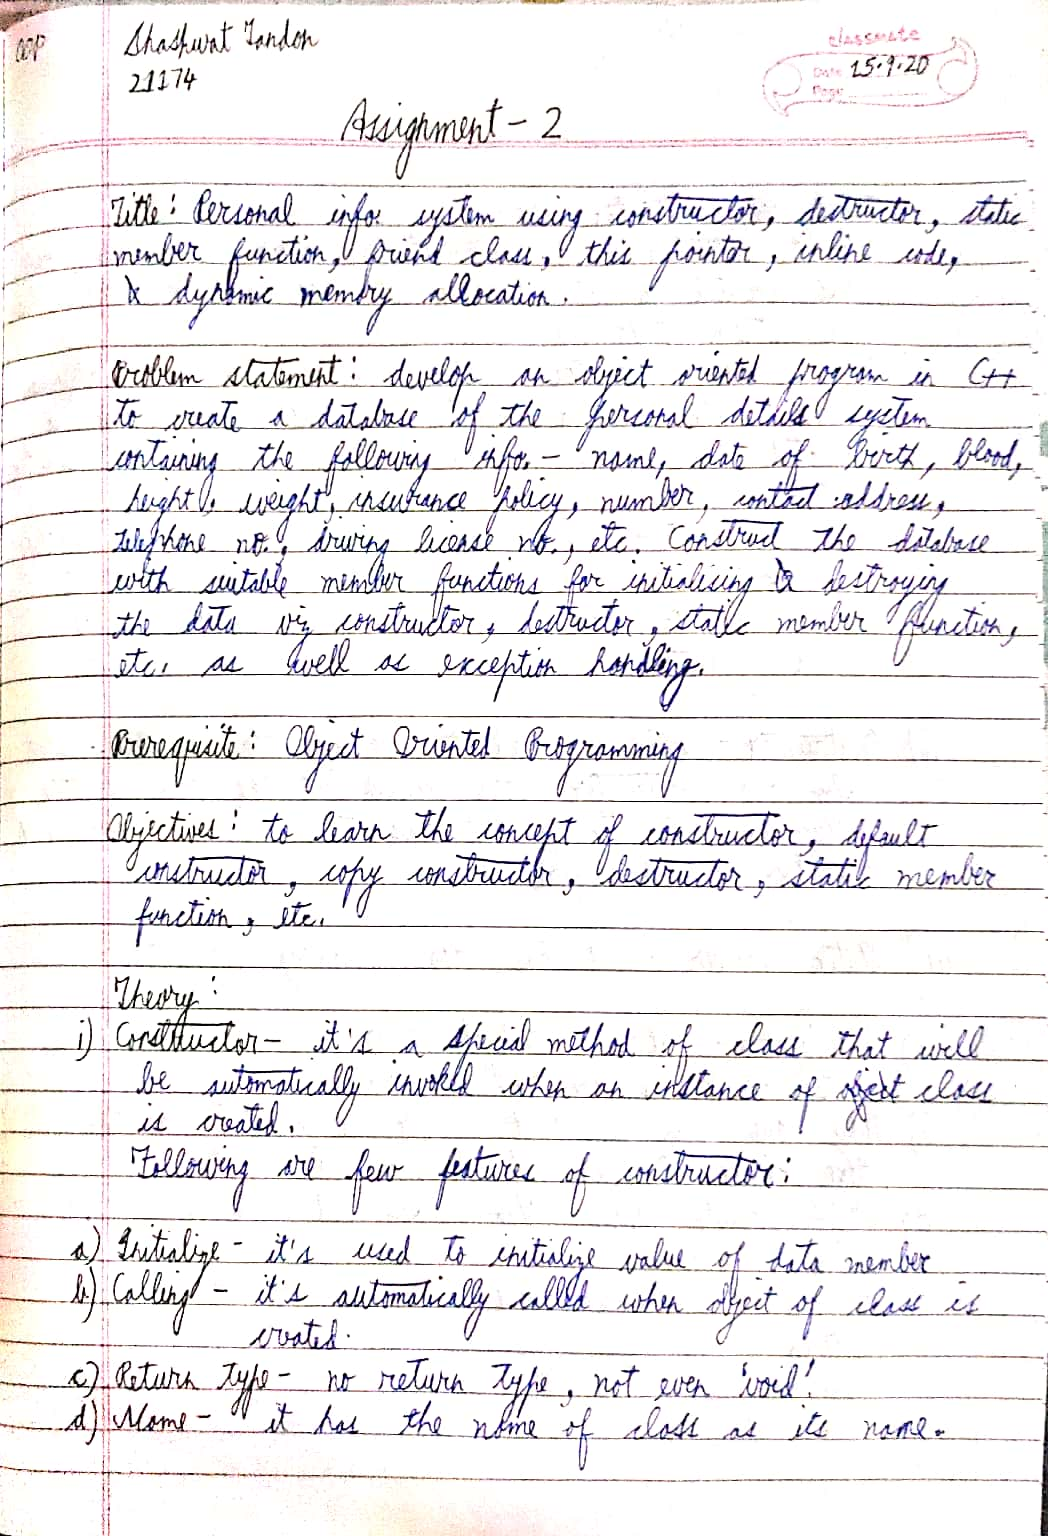 OOP
Shashwat Tandon
21174
classmate
Date 15.9.20
Page
Assignment - 2
Title: Personal info. system using constructor, destructor, static
member function, friend class, this pointer, inline code,
& dynamic memory allocation.
Problem statement: develop an object oriented program in C++
to create a database of the personal details system
containing the following info. - name, date of birth, blood,
height, weight, insurance policy, number, contact address,
telephone no., driving license no., etc. Construct the database
with suitable member functions for initialising & destroying
the data viz constructor, destructor, static member function,
etc. as well as exception handling.
Prerequisite: Object Oriented Programming
Objectives: to learn the concept of constructor, default
constructor, copy constructor, destructor, static member
function, etc.
Theory:
i) Constructor - it's a special method of class that will
be automatically invoked when an instance of object class
is created.
Following are few features of constructor:
a) Initialize - it's used to initialize value of data member
b) Calling - it's automatically called when object of class is
created.
c) Return type - no return type, not even 'void'
d) Name - it has the name of class as its name.